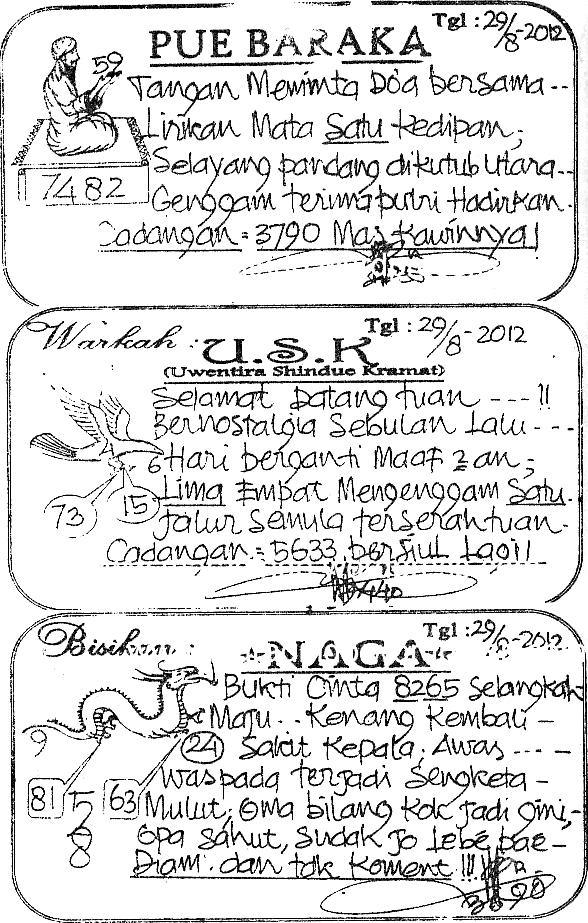 Tgl : 29/8-2012
PUE BARAKA
59
Tangan Meminta Doa bersama--
Lirikan Mata Satu Kedipan;
Selayang pandang dikutub Utara--
7482
Genggam terima putri Hadirkan.
Cadangan = 3790 Mas Kawinnya!
Tgl : 29/8-2012
Warkah :
U.S.K
(Uwentira Shindue Kramat)
Selamat Datang tuan ---!!
Bernostalgia Sebulan Lalu---
6 Hari berganti Maaf 2 an;
73
15
Lima Empat Mengenggam Satu.
Jalur Semula terserah tuan.
Cadangan = 5633 bersiul Lagi!
Tgl : 29/8-2012
Bisikan :
NAGA
Bukti Cinta 8265 Selangkah
Maju.. Kenang Kembali -
9
24 Sakit Kepala; Awas --- -
Waspada terjadi Sengketa -
81
63
Mulut; Oma bilang Kok jadi gini,-
Opa sahut, Sudah Jo Lebe bae-
Diam. dan tdk Koment !!!